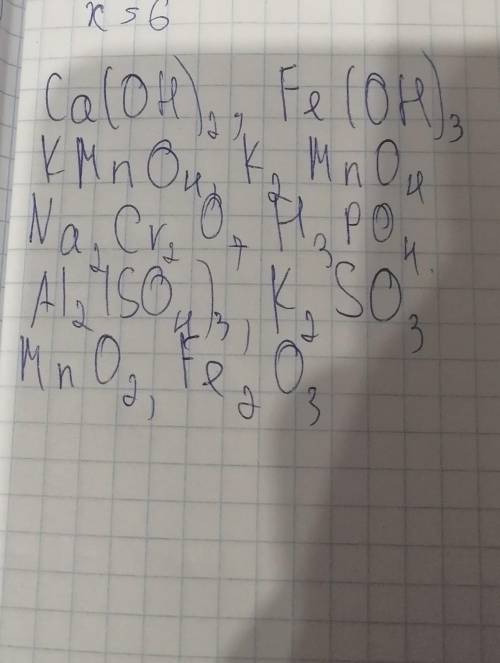 x = 6
Ca(OH)₂, Fe(OH)₃
KMnO₄, K₂MnO₄
Na₂Cr₂O₇, H₃PO₄.
Al₂(SO₄)₃, K₂SO₃
MnO₂, Fe₂O₃